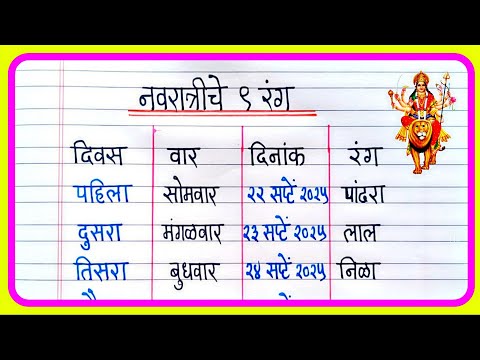 नवरात्रीचे ९ रंग
दिवस वार दिनांक रंग
पहिला सोमवार २२ सप्टें २०२५ पांढरा
दुसरा मंगळवार २३ सप्टें २०२५ लाल
तिसरा बुधवार २४ सप्टें २०२५ निळा